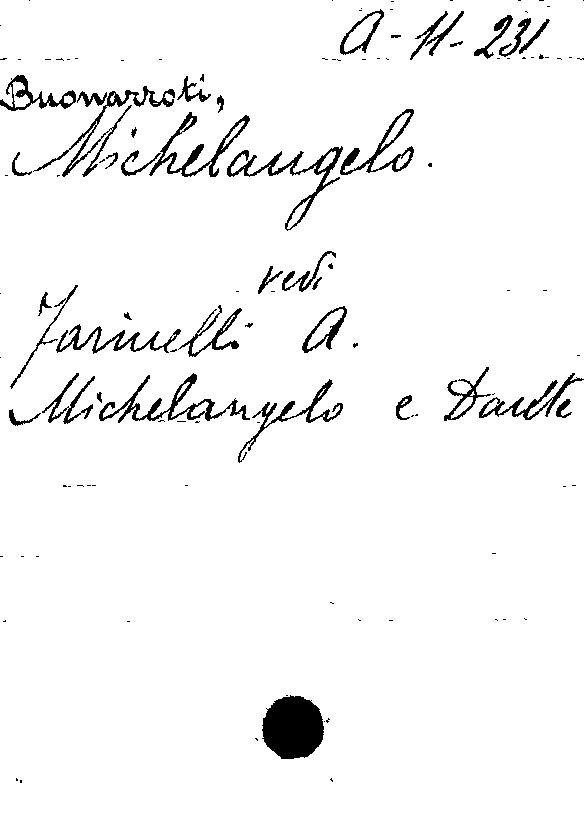 A-11-231.
Buonarroti,
Michelangelo.
vedi
Farinelli A.
Michelangelo e Dante